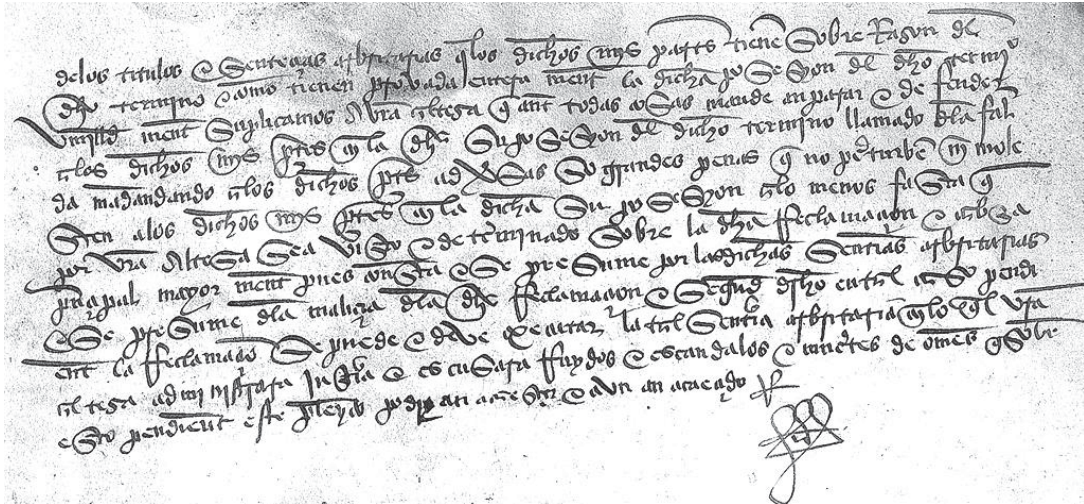 delos titulos e Sentençias arbitrarias q los dichos mys partes tiene Sobre Razon del
dho termino e como tienen provada entera ment la dicha posesyon del dho termyo
vmilld ment Suplicamos a vra altega q ant todas cosas mande anparar e defender
alos dichos mys ptes en la dha Su posesyon del dicho termino llamado dla fal
da mandando alos dichos ptes adversas So grandes penas q no perturbe ni mole
Sten alos dichos mys ptes en la dicha Su posesyon alo menos fasta q
por vra altesa sea visto e determinado sobre la dha rreclamaçion e cabsa
prinçipal mayor ment pues consta e Se presume por las dichas Sentias arbitrarias
e Se presume dla maliçia dla dha rreclamaçion e Segud dro en tal caso pendi
ent la rreclamaçio Se puede e deve executar la tal Sentia arbitraria en lo qual vra
altega administrara Justiçia e escusara rruydos e escandalos e muertes de omes q sobre
esto pendient este pleyto podrian acaesçer e avn an acaeçido